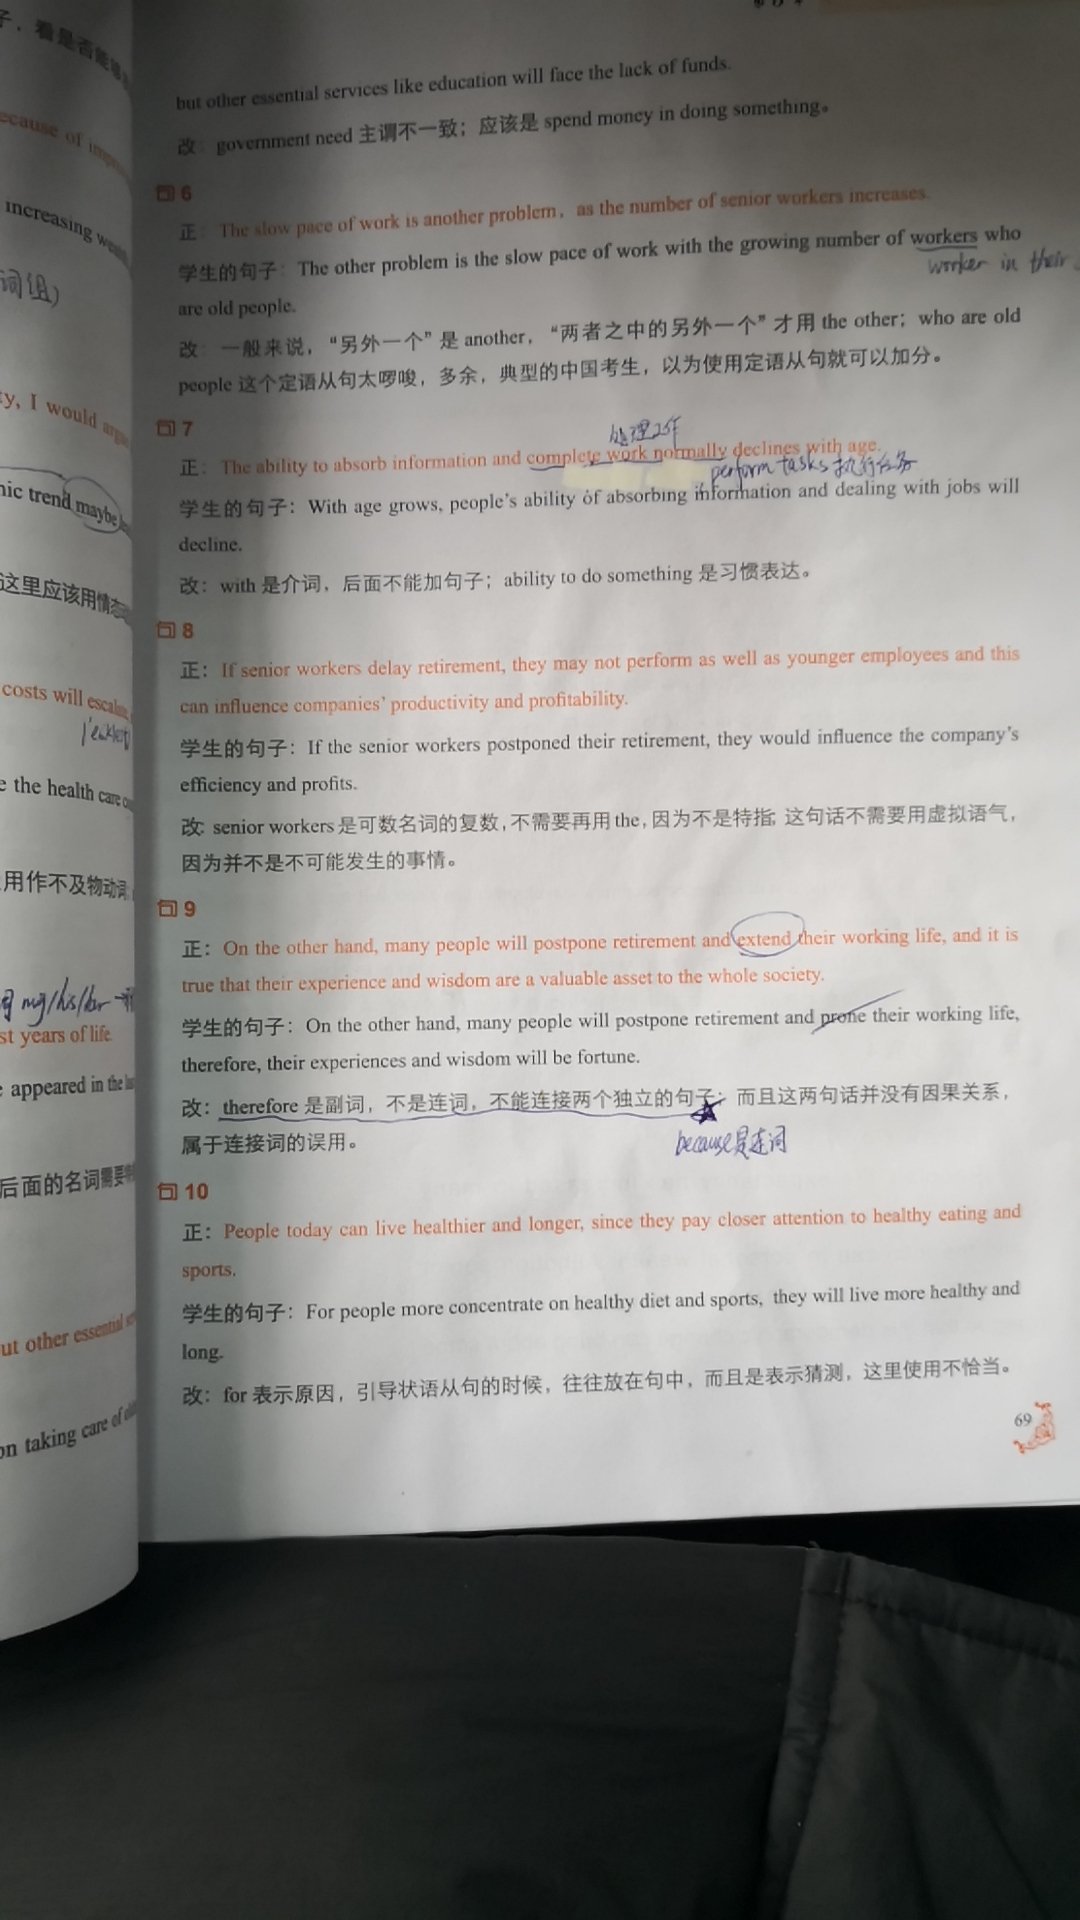 子，看是否能够
because of
increasing
词组）
I would
nic trend maybe
这里应该用情态
costs will
e the health care
用作不及物动词
词 my/his/her 一
st years of life.
appeared in the
后面的名词需要
ut other essential
on taking care of
but other essential services like education will face the lack of funds.
改：government need 主谓不一致；应该是 spend money in doing something。
句 6
正：The slow pace of work is another problem, as the number of senior workers increases.
学生的句子：The other problem is the slow pace of work with the growing number of workers who
worker in their
are old people.
改：一般来说，“另外一个”是 another，“两者之中的另外一个”才用 the other；who are old
people 这个定语从句太啰唆，多余，典型的中国考生，以为使用定语从句就可以加分。
句 7
处理工作
正：The ability to absorb information and complete work normally declines with age.
perform tasks 执行任务
学生的句子：With age grows, people’s ability of absorbing information and dealing with jobs will
decline.
改：with 是介词，后面不能加句子；ability to do something 是习惯表达。
句 8
正：If senior workers delay retirement, they may not perform as well as younger employees and this
can influence companies’ productivity and profitability.
学生的句子：If the senior workers postponed their retirement, they would influence the company’s
efficiency and profits.
改：senior workers 是可数名词的复数，不需要再用 the，因为不是特指；这句话不需要用虚拟语气，
因为并不是不可能发生的事情。
句 9
正：On the other hand, many people will postpone retirement and extend their working life, and it is
true that their experience and wisdom are a valuable asset to the whole society.
学生的句子：On the other hand, many people will postpone retirement and prone their working life,
therefore, their experiences and wisdom will be fortune.
改：therefore 是副词，不是连词，不能连接两个独立的句子；而且这两句话并没有因果关系，
属于连接词的误用。
because是连词
句 10
正：People today can live healthier and longer, since they pay closer attention to healthy eating and
sports.
学生的句子：For people more concentrate on healthy diet and sports, they will live more healthy and
long.
改：for 表示原因，引导状语从句的时候，往往放在句中，而且是表示猜测，这里使用不恰当。
69